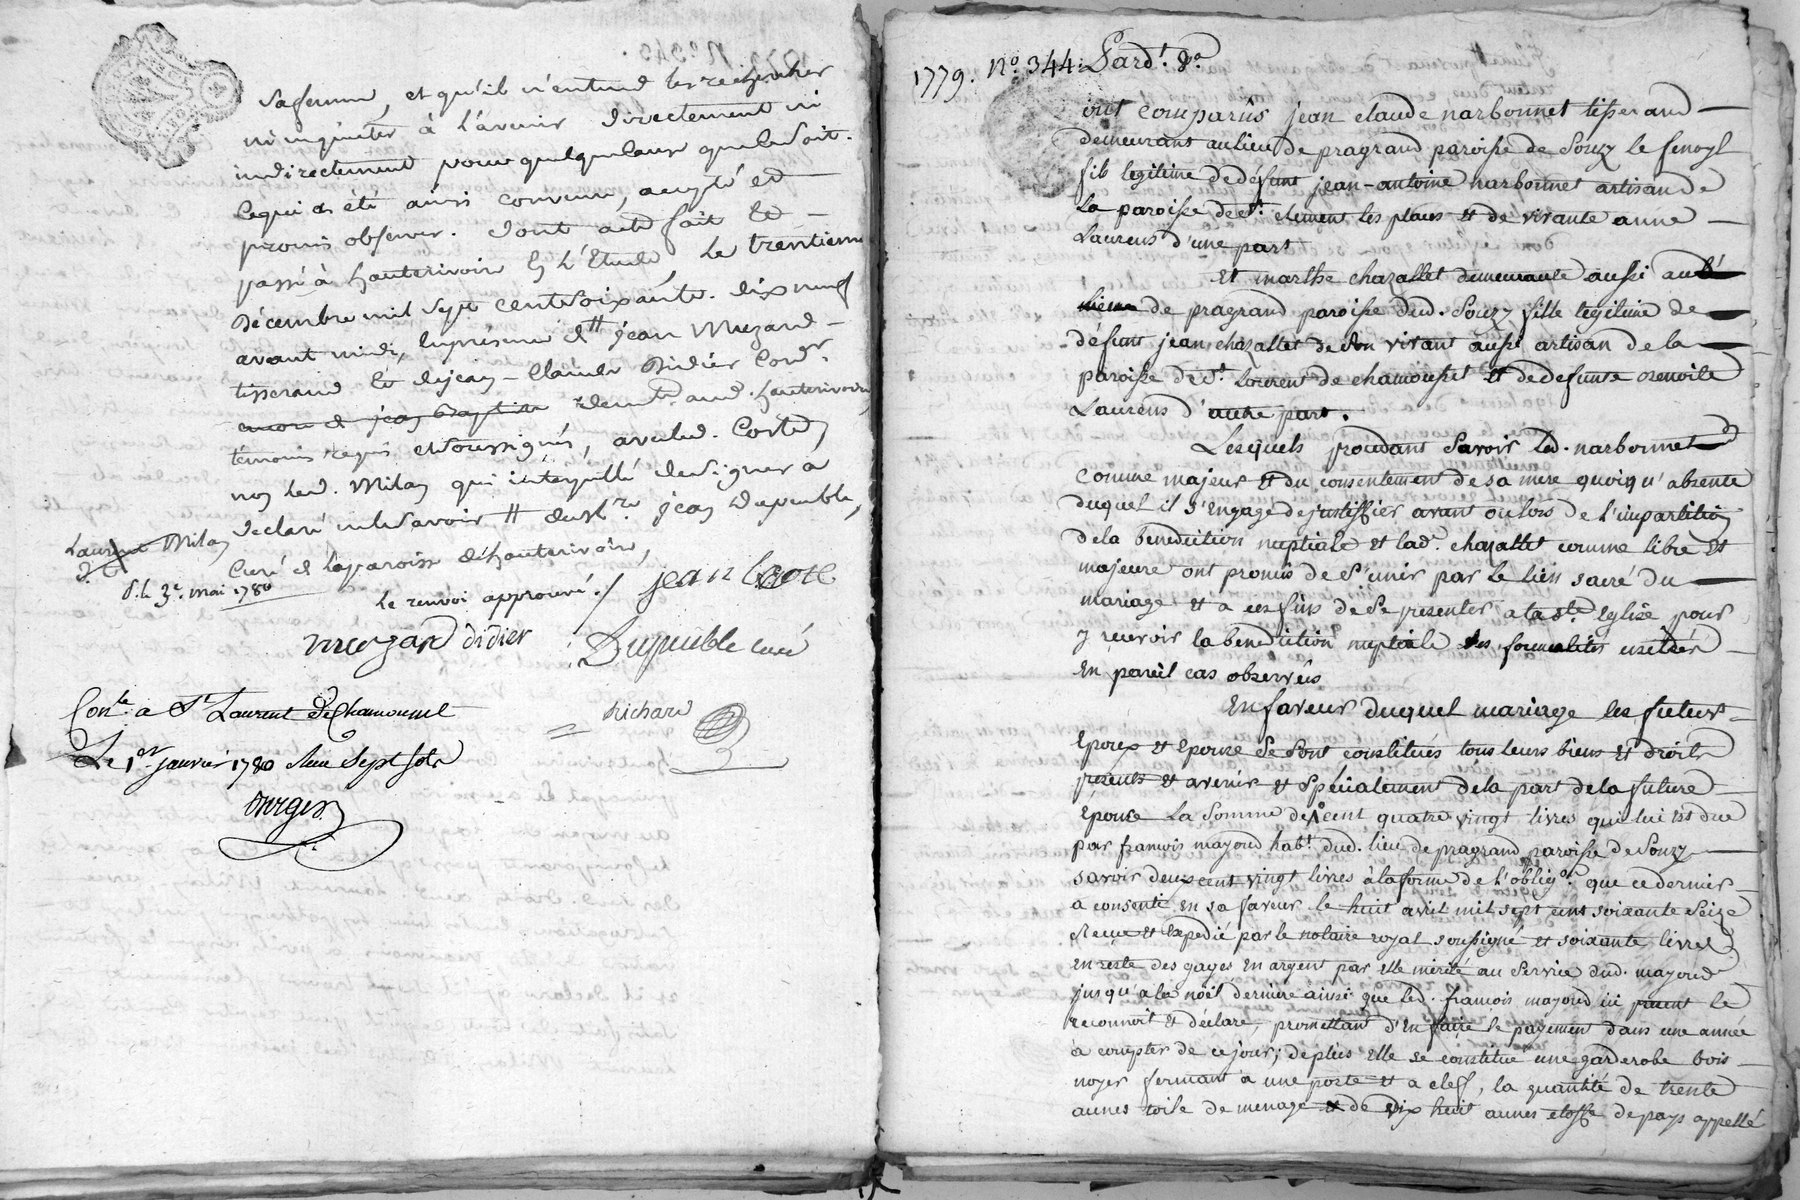 sa femme, et qu'il n'entend les rechercher
ni inquieter à l'avenir directement ni
indirectement pour quelque cause que ce soit.
Ce qui a été ainsi convenu, accepté et
promis observer. Dont acte fait et
passé à hauterivoire En l'Etude, Le trentieme
Décembre mil sept cent soixante. dix neuf
avant midi, En présence de jean
tisserand et de jean-Claude Didier Cordr.
demts. aud. hauterivoire
témoins requis et soussignés, avec led. Coste,
non led. Milan qui interpellé de signer a
declaré ne le savoir jean Dupeuble,
Curé de la paroisse de hauterivoire,
Laurent Milan
d. le 3e. mai 1780
Le renvoi approuvé ./ jean Coste
didier Dupeuble curé
Conlé a St Laurent De Chamousset
Le 1er janvier 1780 Reçu Sept sols
Richard
1779. No. 344: Pardt. &a
ont comparûs jean claude narbonnet tisserand
demeurant au lieu de pragrand paroisse de Souzy le fenoyl
fils legitime de défunt jean-antoine narbonnet artisan de
la paroisse de St. clement les places et de vivante anne
Laurens d'une part
Et marthe chazallet demeurante aussi aud.
lieu de pragrand paroisse dud. Souzy fille legitime de
défunt jean chazallet de son vivant aussi artisan de la
paroisse de St. Laurent de chamousset et de defunte Benoite
Laurens d'autre part.
Lesquels procedant Savoir led. narbonnet
comme majeur et du consentement de sa mere quoiqu'absente
duquel il s'engage de justiffier avant ou lors de l'impartition
de la benediction nuptiale et lade. chazallet comme libre et
majeure ont promis de s'unir par le lien sacré du
mariage et a ces fins de se presenter a la ste. Eglise pour
y recevoir la benediction nuptiale les formalites usitées
En pareil cas observées
En faveur duquel mariage les futurs
Epoux et Epouse se sont constitués tous leurs biens et droits
presents et avenir et spécialement de la part de la future
Epouse La Somme de cent quatre vingt livres qui lui est due
par francois mayoud habt. dud. lieu de pragrand paroisse de Souzy
savoir deux cent vingt livres à la forme de l'obligon. que ce dernier
a consenti en sa faveur le huit avril mil sept cent soixante Seize
Recue et Expedié par le notaire royal soussigné et soixante livres
en reste des gages en argent par elle mérité au service dud. mayoud
jusqu'a la noël derniere ainsi que led. francois mayoud ici present le
reconnoit et déclare, promettant d'en faire le payement dans une année
a compter de ce jour; de plus elle se constitue une garderobe bois
noyer fermant a une porte et a clef, la quantité de trente
aunes toile de menage et de dix huit aunes etoffe de pays appellé